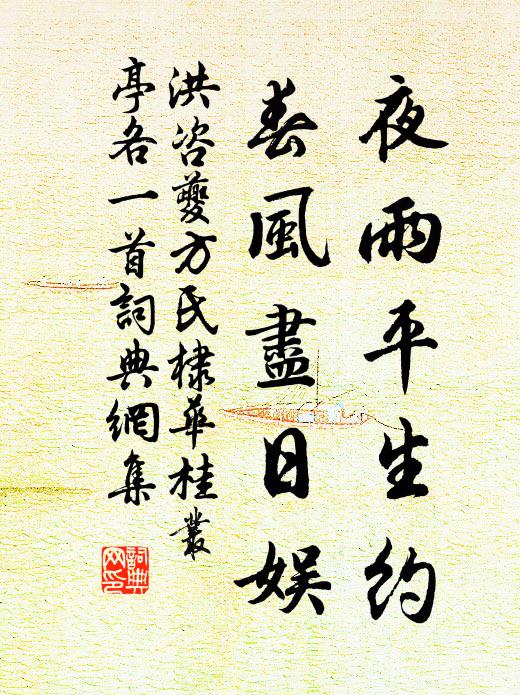 夜雨平生約
春風盡日娛
洪咨夔方氏棣華桂叢
亭各一首詞典網集
詞典
网印